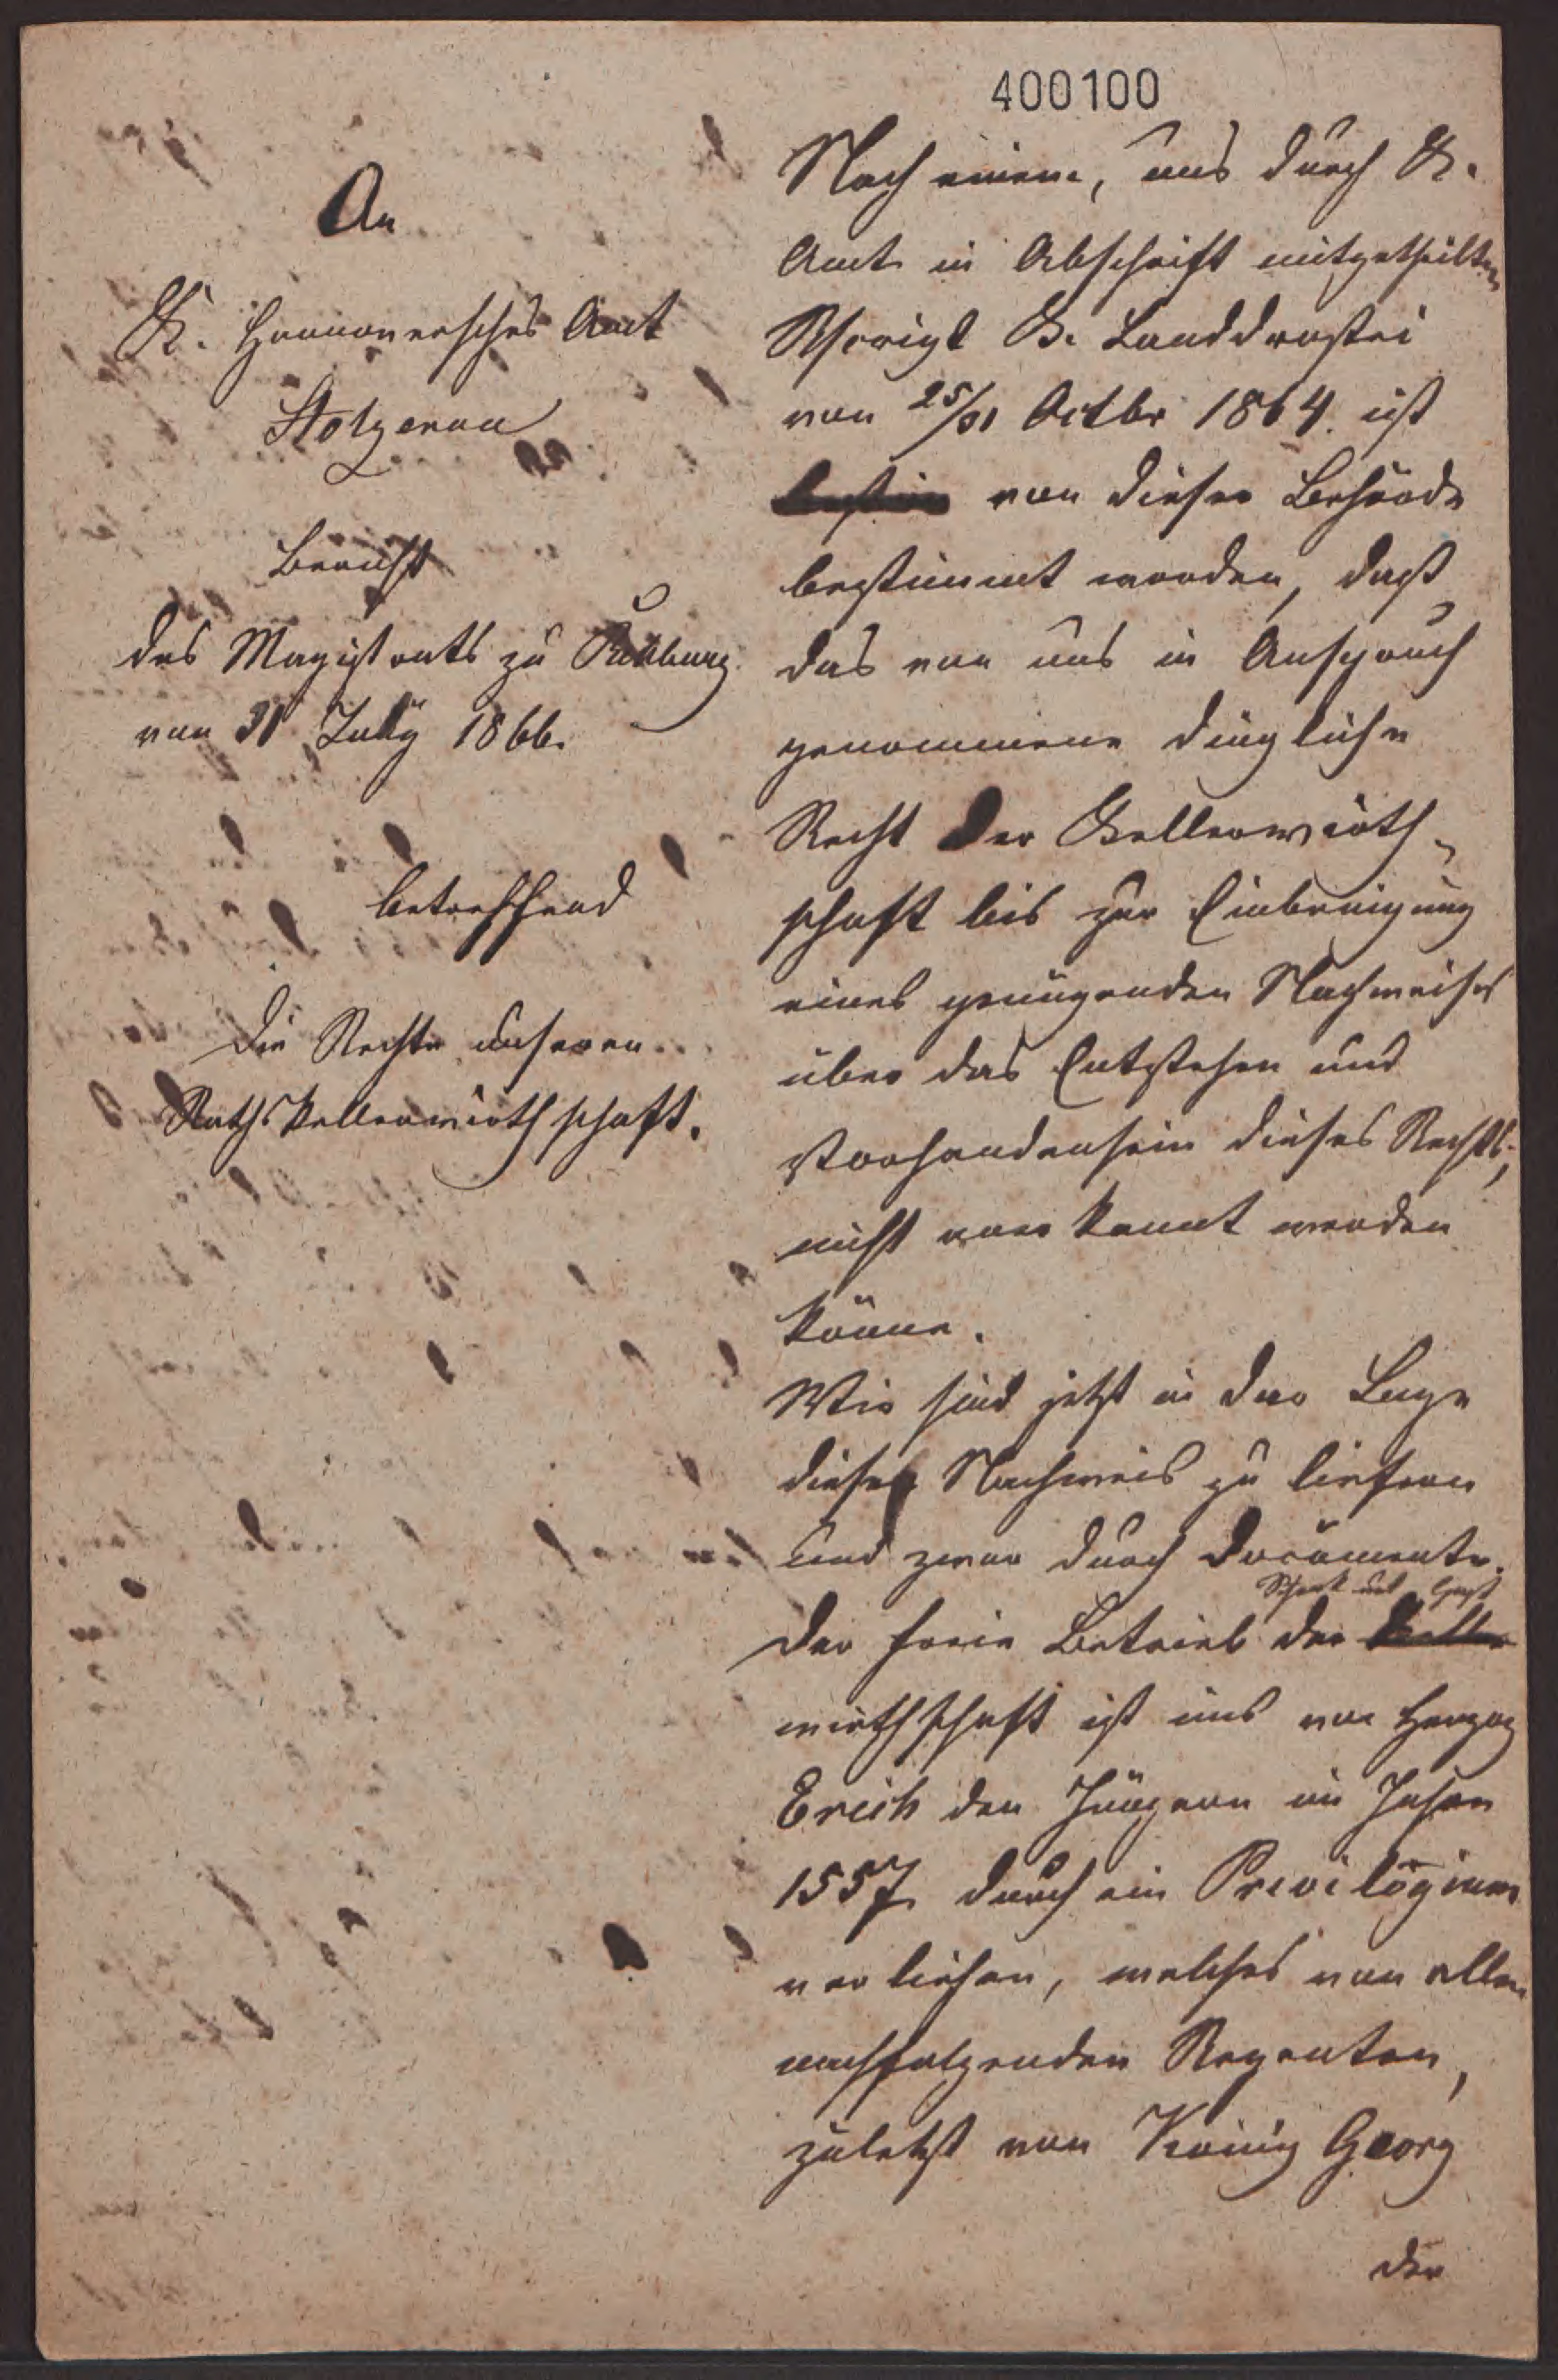 400100
An
K. Hannoversches Amt
Stolzenau
Bericht
des Magistrats zu Rehburg
von 31 July 1866.
betreffend
Die Rechte unserer
Rathskellerwirthschaft.
Nach einem, uns durch K.
Amt in Abschrift mitgetheilten
K. Landdrostei
von 25/31 Octbr 1864. ist
von dieser Behörde
bestimmt worden, daß
das von uns in Anspruch
genommene dingliche
Recht der Kellerwirth-
schaft bis zur Einbringung
eines genügenden Nachweises
über das Entstehen und
Vorhandensein dieses Rechts,
nicht anerkannt werden
könne.
Wir sind jetzt in der Lage
diesen Nachweis zu liefern
und zwar durch Documente.
Schenk und Gast
Der freie Betrieb der Keller
wirthschaft ist uns von Herzog
Erich den Jüngern im Jahre
1557 durch ein Privilegium
verliehen, welches von allen
nachfolgenden Regenten,
zuletzt von König Georg
der